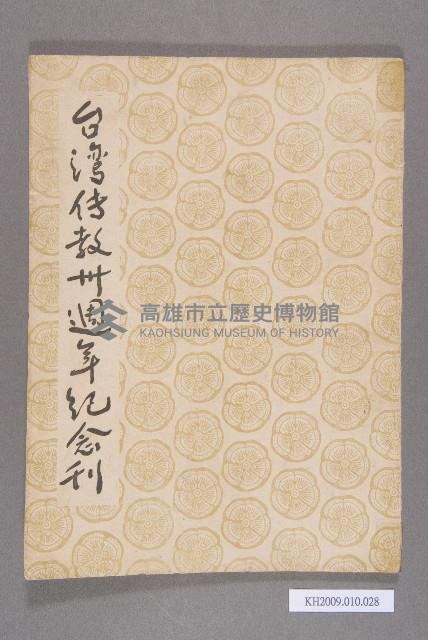 台湾传教卅週年纪念刊
高雄市立歷史博物館
KAOHSIUNG MUSEUM OF HISTORY
KH2009.010.028